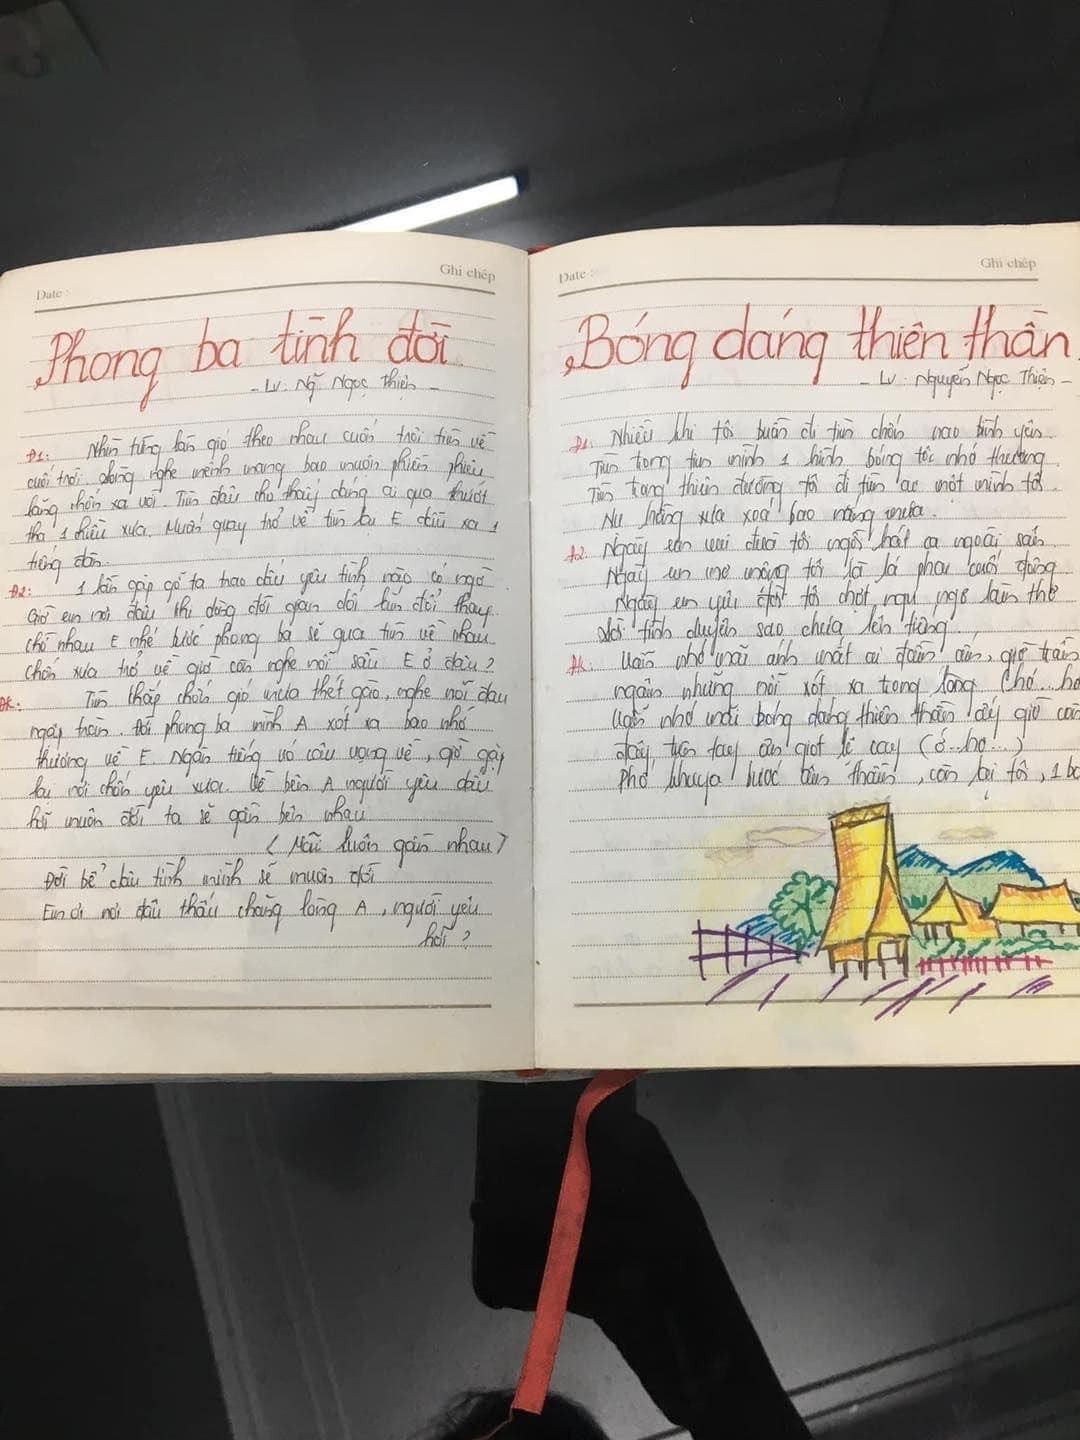 Date :
Ghi chép
Phong ba tình đời
- Lv. Ng̃ Ngọc Thiện -
Đ1: Nhìn từng làn gió theo nhau cuối trời tìm về
cuối trời. mênh mang bao muôn phiền
Tìm đâu cho thấy dáng ai qua thướt
tha 1 chiều xưa. Muốn quay trở về tìm lại E dẫu xa 1
tiếng đàn.
Đ2: 1 lần gặp gỡ ta trao dấu yêu tình nào có ngờ
Giờ em nơi đâu thì dòng đời gian dối lắm đổi thay
chờ nhau E nhé bước phong ba sẽ qua tìm về nhau
chốn xưa trở về giờ còn nghe nỗi sầu E ở đâu?
ĐK: Tìm thấp choáng gió mưa thét gào, nghe nỗi đau
ngập tràn. đời phong ba mình A xót xa bao nhớ
thương về E. Ngân tiếng vó câu vọng về, giờ gặp
lại nơi chốn yêu xưa. Về bên A người yêu dấu
hỡi muôn đời ta sẽ gần bên nhau
(Mãi luôn gần nhau)
Đời bể dâu tình mình sẽ muôn đời
Em ơi nơi đâu thấu chăng lòng A, người yêu
hỡi?
Date :
Ghi chép
Bóng dáng thiên thần
- Lv. Nguyễn Ngọc Thiện -
Đ1. Nhiều khi tôi buồn đi tìm chốn nao bình yên
Tìm trong tim mình 1 hình bóng tóc nhớ thương
Tìm trong thiên đường tôi đi tìm ai một mình tôi.
Nụ hồng xưa xoá bao nắng mưa.
Đ2. Ngày em vui đưa tôi ngồi hát ca ngoài sân
Ngày em mơ mộng tôi là lá phai cuối đông
Ngày em yêu đời tôi chợt ngu ngơ làm thơ
Lời tình duyên sao chưa lên tiếng.
ĐK. Vẫn nhớ mãi ánh mắt ai đằm ấm, giờ tràn
ngân những nỗi xót xa trong lòng (hớ.. hơ
Vẫn nhớ mãi bóng dáng thiên thần ấy giờ còn
đây, trên tay cần giọt lệ cay (ớ..hơ...)
Phố khuya bước âm thầm, còn lại tôi, 1 bó